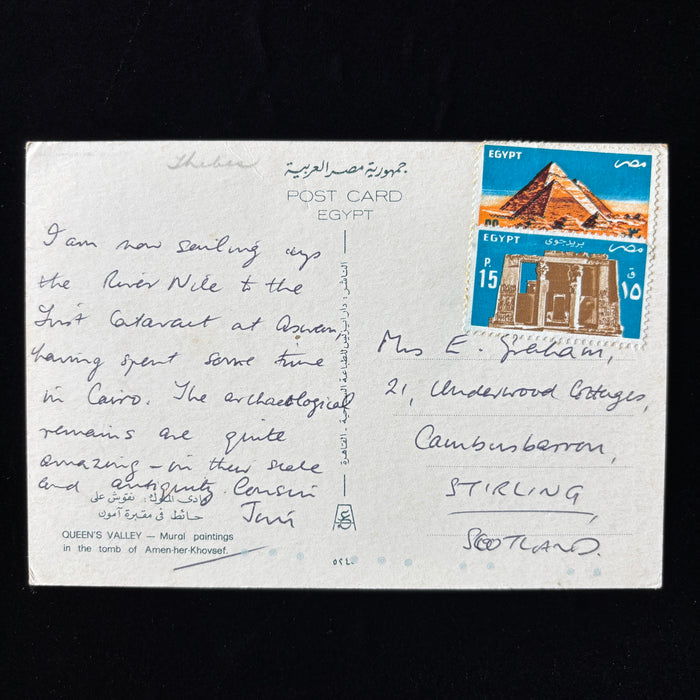 Thebes
جمهورية مصر العربية
POST CARD
EGYPT
I am now sailing up
the River Nile to the
First Cataract at Aswan,
having spent some time
in Cairo. The archaeological
remains are quite
amazing – in their scale
and antiquity. Cousin
وادى الملوك: نقوش على
حائط فى مقبرة آمون
QUEEN'S VALLEY — Mural paintings
in the tomb of Amen-her-Khovsef.
٥٢٤٠
EGYPT
مصر
EGYPT
بريد جوى
مصر
P.
15
ق
١٥
Mrs E. Graham,
21, Underwood Cottages,
Cambusbarron,
STIRLING,
SCOTLAND.